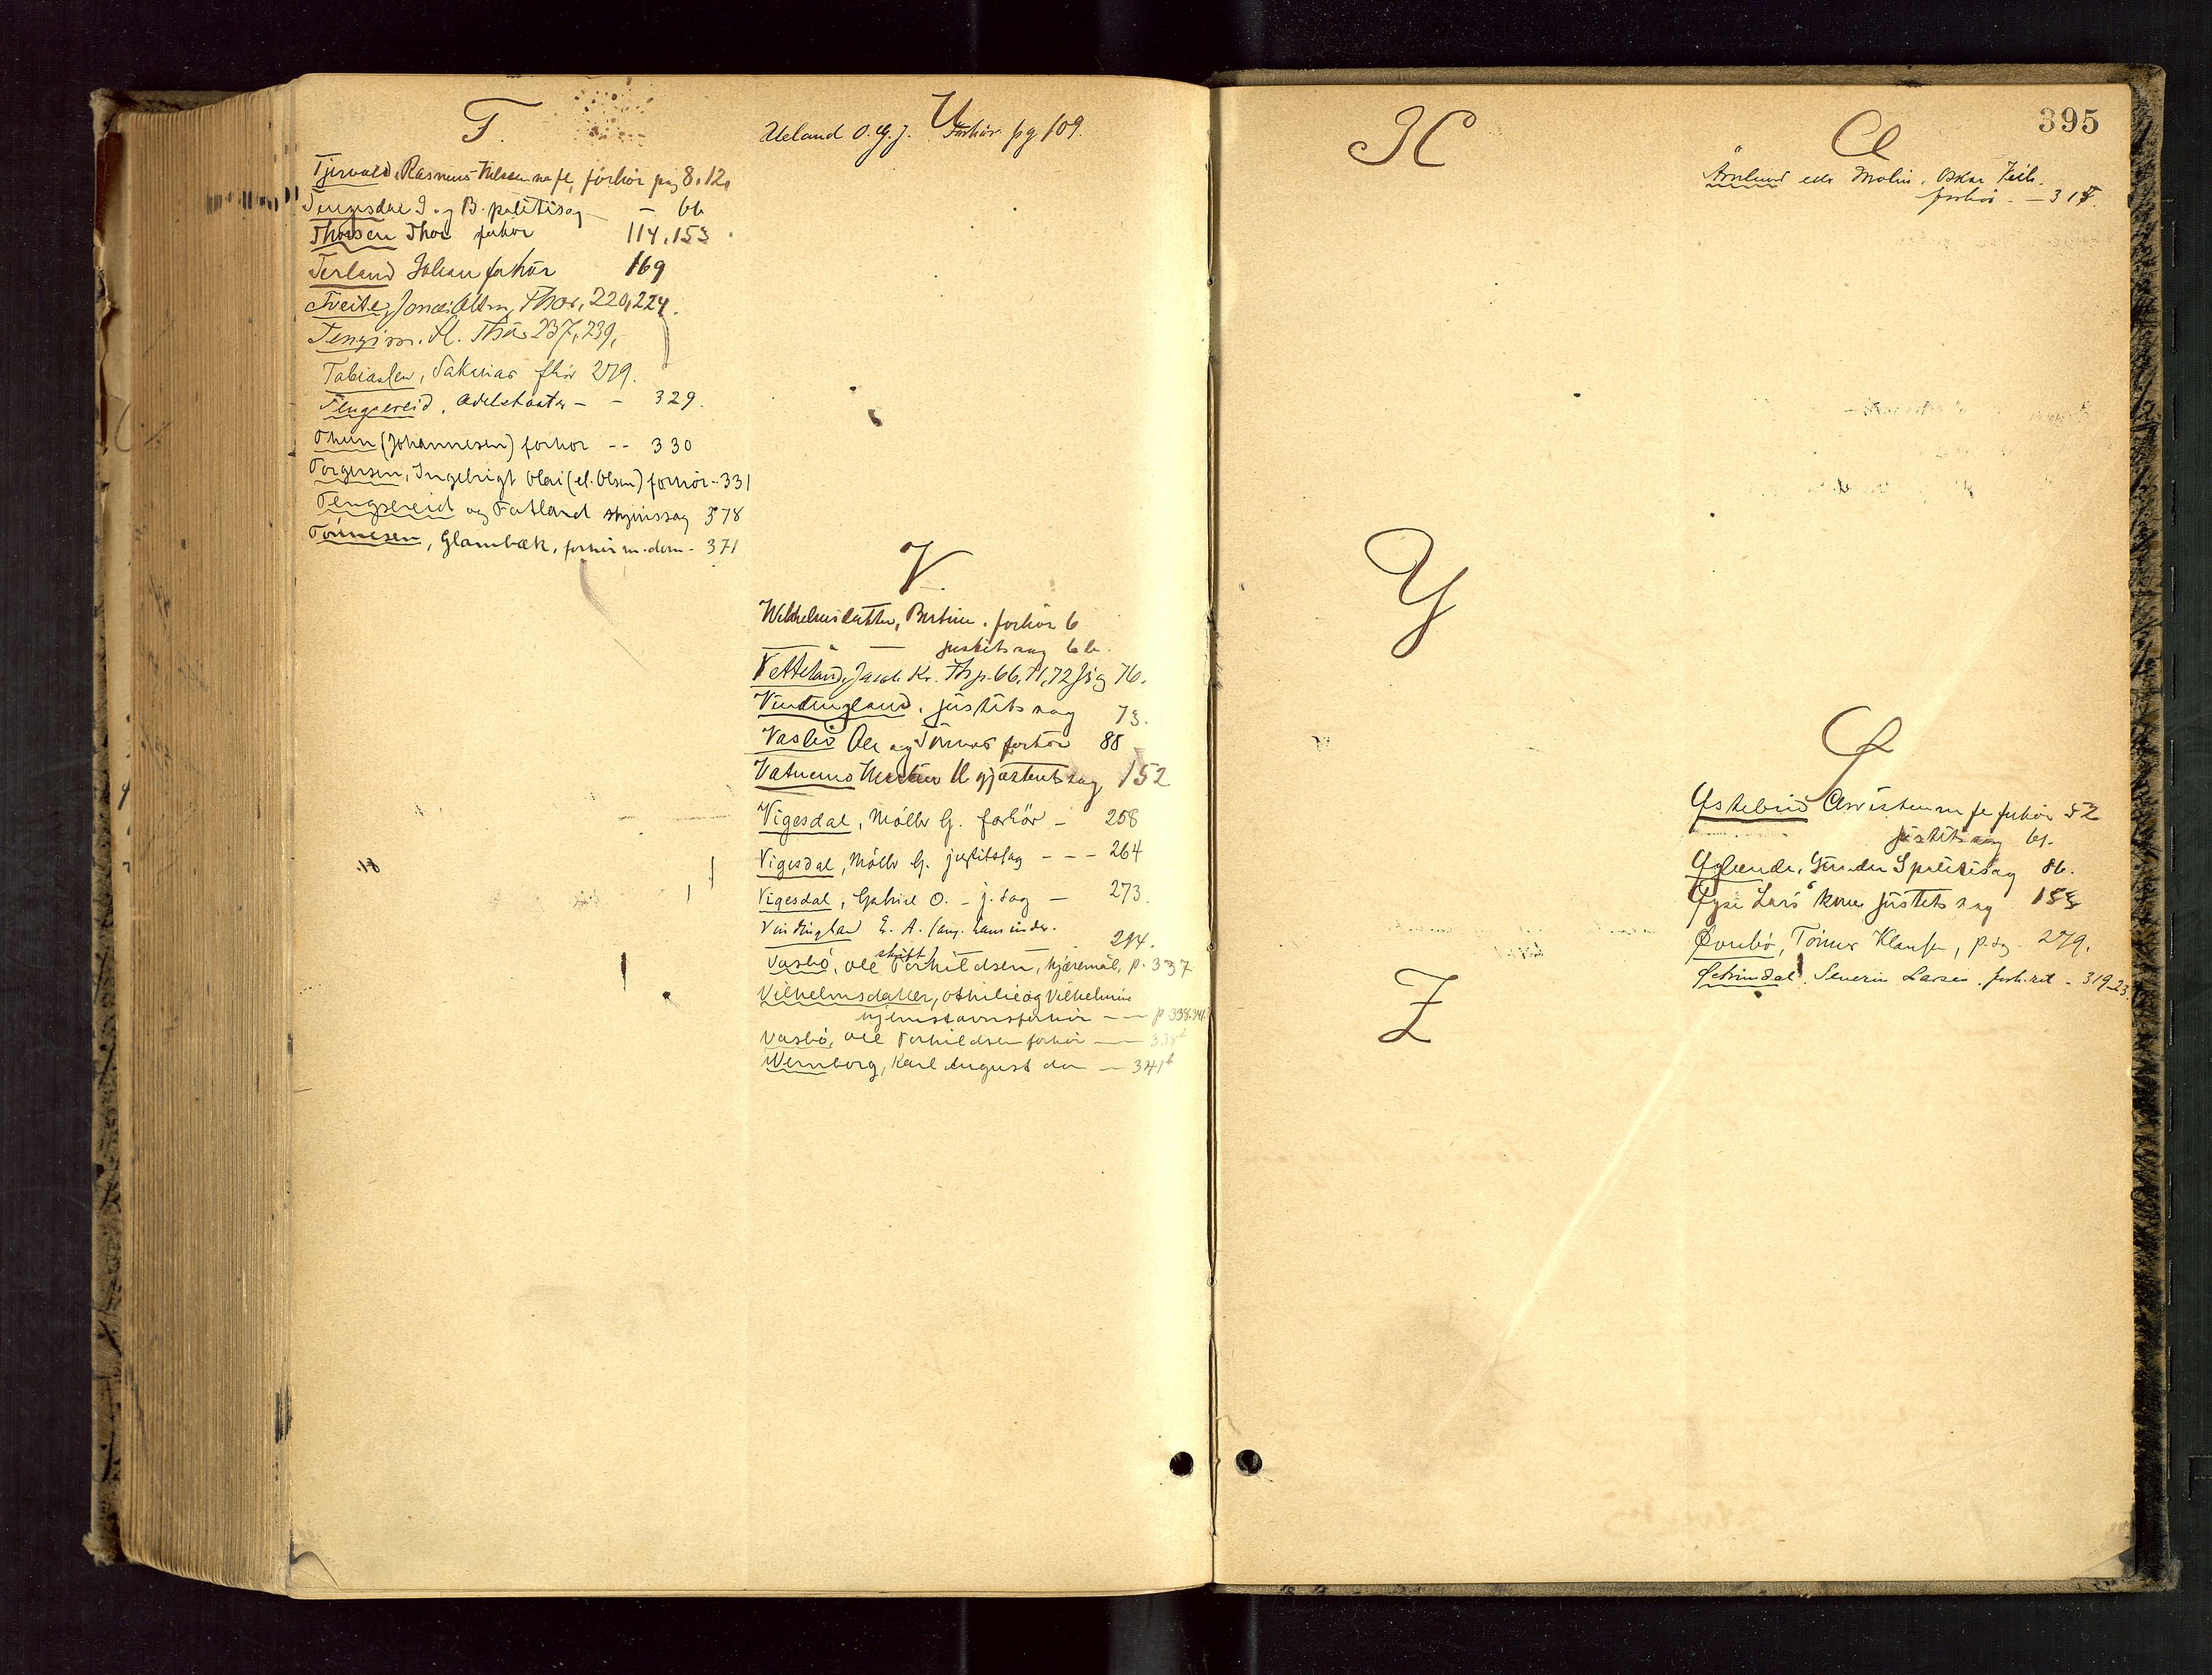 T.
Tjersvold, Rasmus Nilsen m fl, forhør pag 8, 12,
Tengesdal I. og B. politisag — 66
Thorsen Thor forhør 114, 153
Terland Johan forhør 169
Tveite, Jonas 220, 224.
237, 239,
Tobiassen, Sakarias fhør 279.
Tengsereid, - - 329.
Thuen (Johannesen) forhør -- 330
Torgersen, Ingebrigt Olai (el. Olsen) forhør - 331
Tengsereid og Fatland skjønssag 378
Tönnesen, Glambæk, forhør m. dom - 371
U
Ueland O. G. J. Forhør pg 109.
V.
Wilhelmsdatter, Bertine. forhør 6
— — justitssag 66.
Vetteland, Jacob Kr. Fhsp. 66, 71, 72 76.
Vindingland, justitssag 73.
Vasbö Ole og Tönnes forhør 88
Vatnemo gjæstertssag 152
Vigesdal, Mölle G. forhör — 258
Vigesdal, Mölle G. justitssag - - - 264
Vigesdal, Gabriel O. - j. sag — 273.
Vindingland E. A. (ang. hans inder-
skrift) 294.
Vasbö, Ole Torkildsen, kjæremål, p. 337
Vilhelmsdatter, Othilie og Vilhelmine
hjemstavnsforhør — — p 338. 341.
Vasbö, Ole Torkildsen forhör — 338b
Wernborg, Karl August do — 341b
395
X
Å
Årslund eller Molin, Oskar
forhør. — 315.
Y
Z
Ø
Østebrid Christen m fl forhør 52
justitssag 61.
Øglænde, Gunder S politisag 86.
Øysi Lars' kone justitssag 153
Øvrebö, Tönnes Klausen, p. sg - 279.
Severin Larsen. forh.ret - 319-23